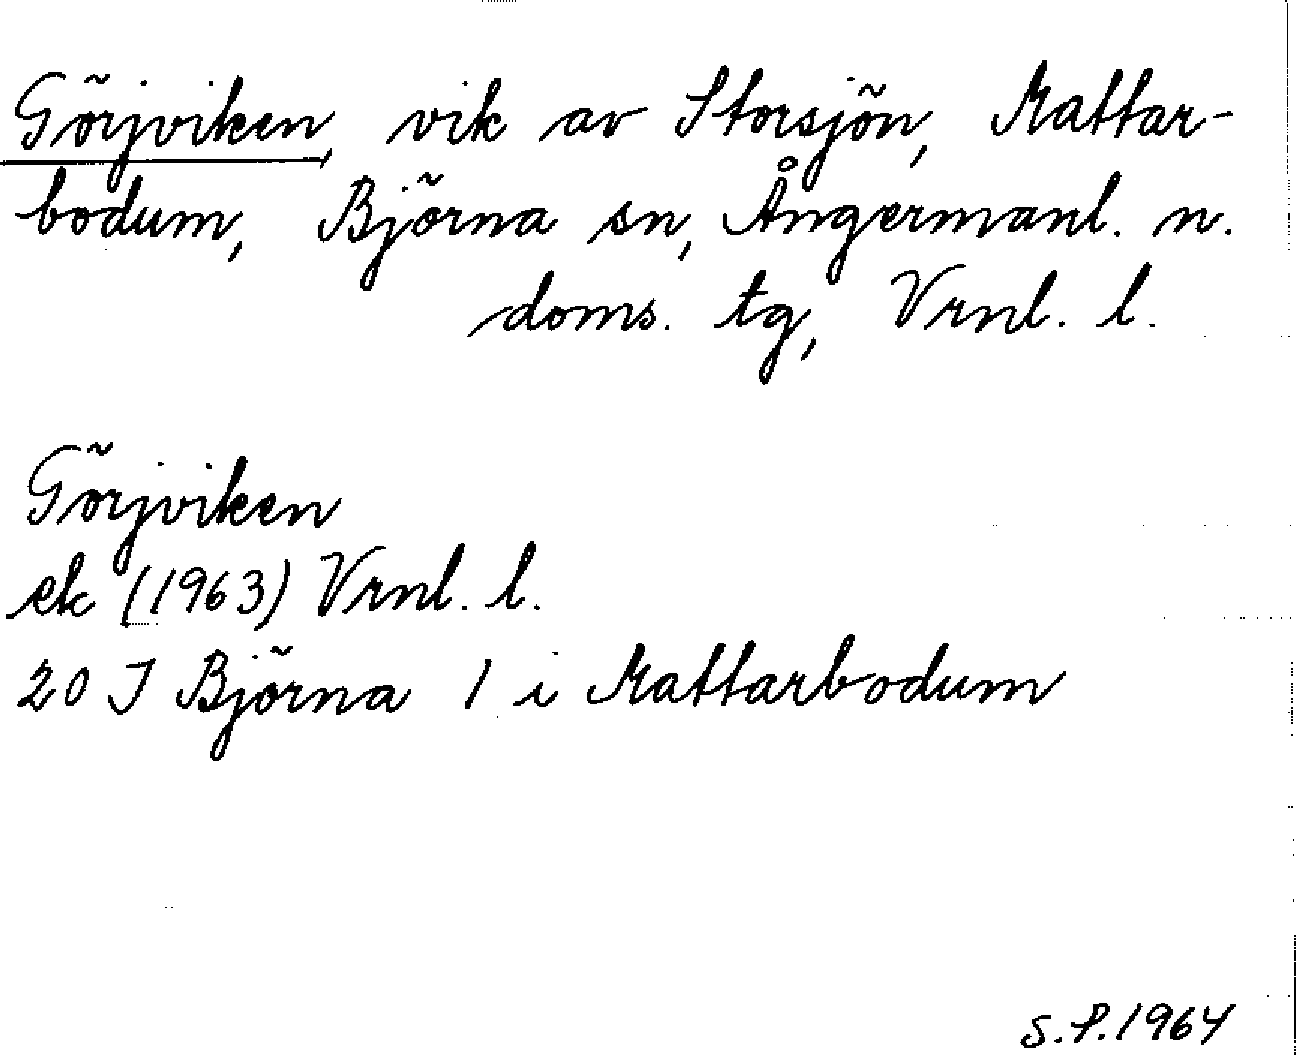 Görjviken, vik av Storsjön, Mattar-
bodum, Björna sn, Ångermanl. n.
doms. tg, Vrnl. l.
Görjviken
ek (1963) Vrnl. l.
20 J Björna 1 i Mattarbodum
S.P. 1964